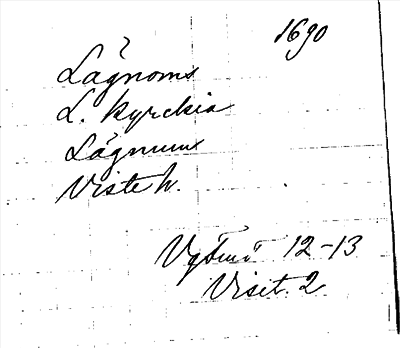 1690
Lågnoms
L. kyrckia
Lågnums
Viste h.
12-13
Visit. 2